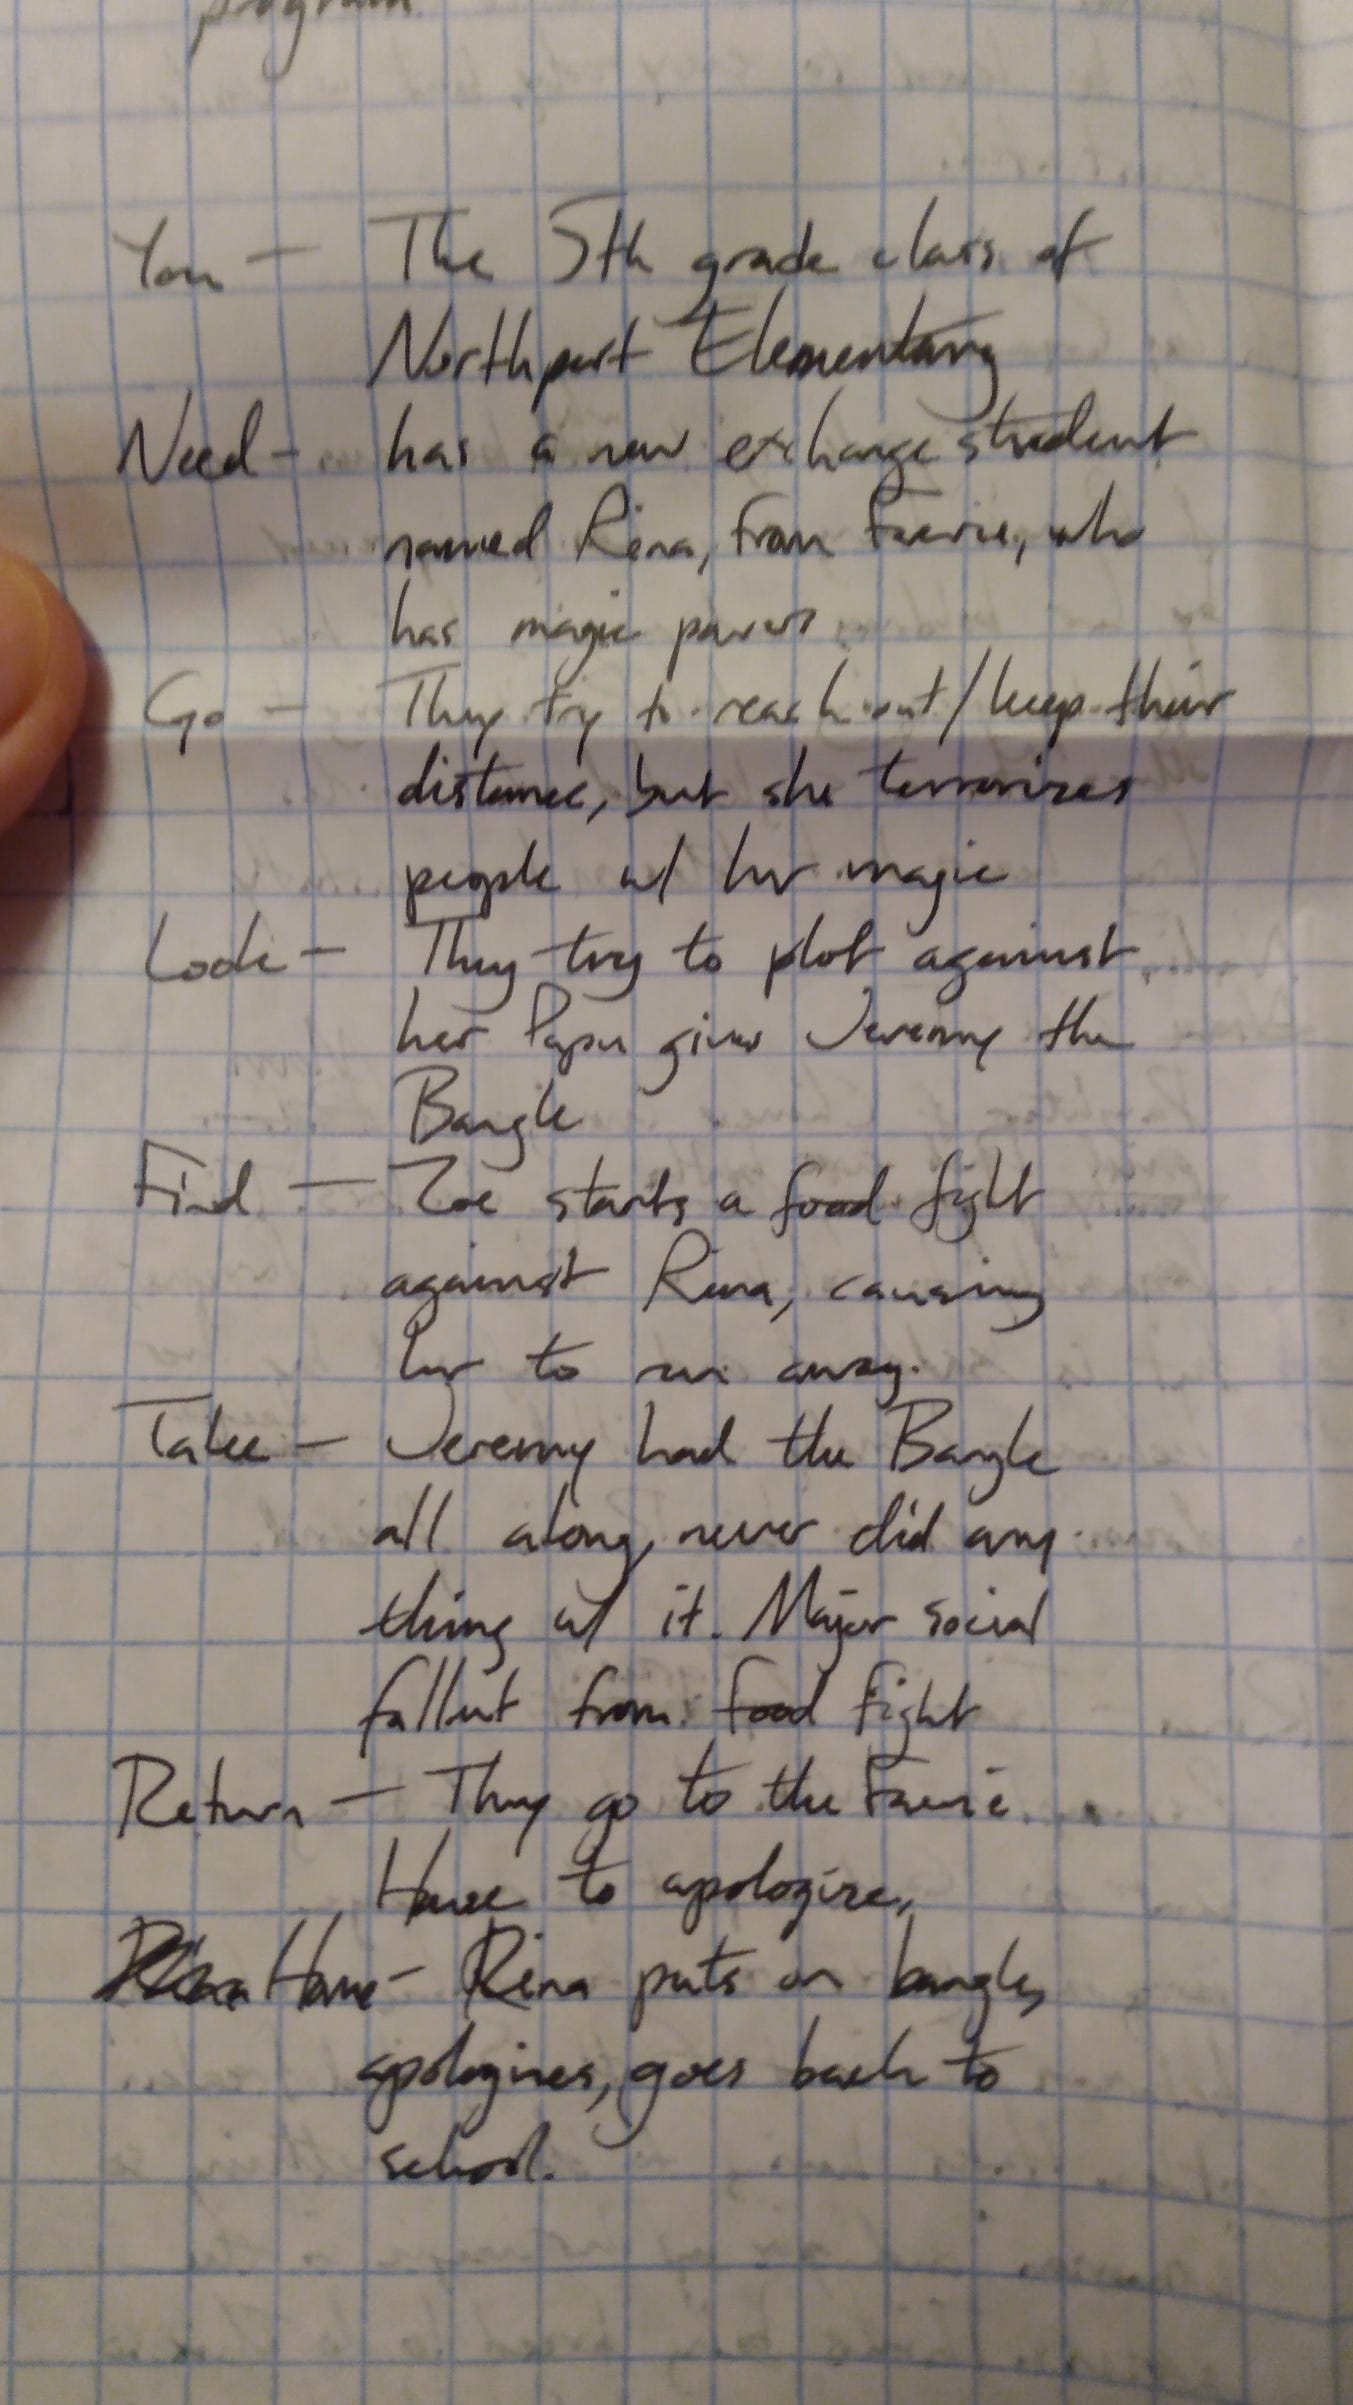 program.
You - The 5th grade class of
Northport Elementary
Need - has a new exchange student
named Rina, from Faerie, who
has magic powers
Go - They try to reach out/keep their
distance, but she terrorizes
people w/ her magic
Look - They try to plot against
her Papa gives Jeremy the
Bangle
Find - Zoe starts a food fight
against Rina, causing
her to run away.
Take - Jeremy had the Bangle
all along, never did any
thing w/ it. Major social
fallout from food fight
Return - They go to the Faerie
House to apologize,
Home - Rina puts on bangle,
apologizes, goes back to
school.